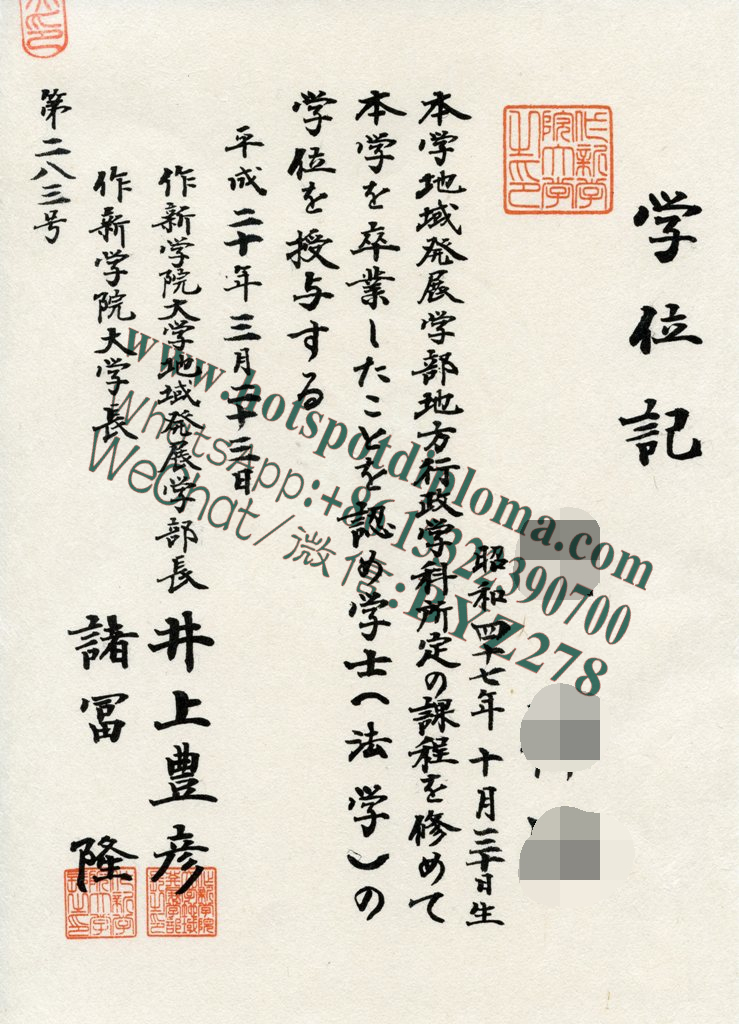 学位記
作新学院大学之印
昭和四十七年十月三十日生
本学地域発展学部地方行政学科所定の課程を修めて
本学を卒業したことを認め学士(法学)の
学位を授与する
平成二十年三月二十三日
作新学院大学地域発展学部長 井上豊彦
作新学院大学長 諸冨 隆
第二八三号
www.hotspotdiploma.com
WhatsApp:
WeChat/微信:BYZ278